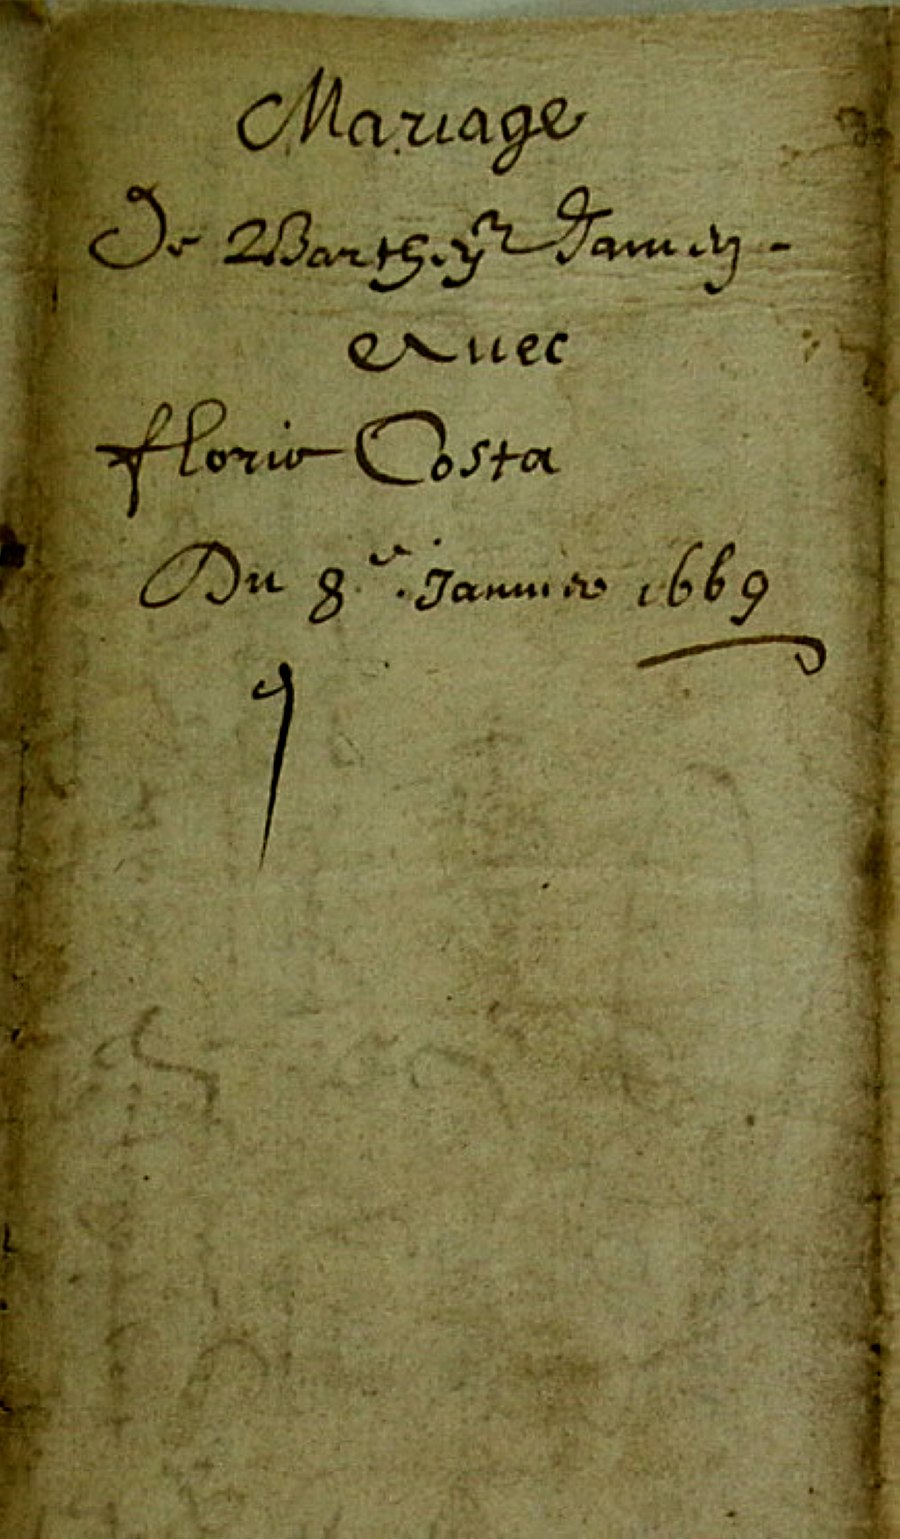 Mariage
De Barth.ey
Auec
florie Costa
Du 8e. Januier 1669